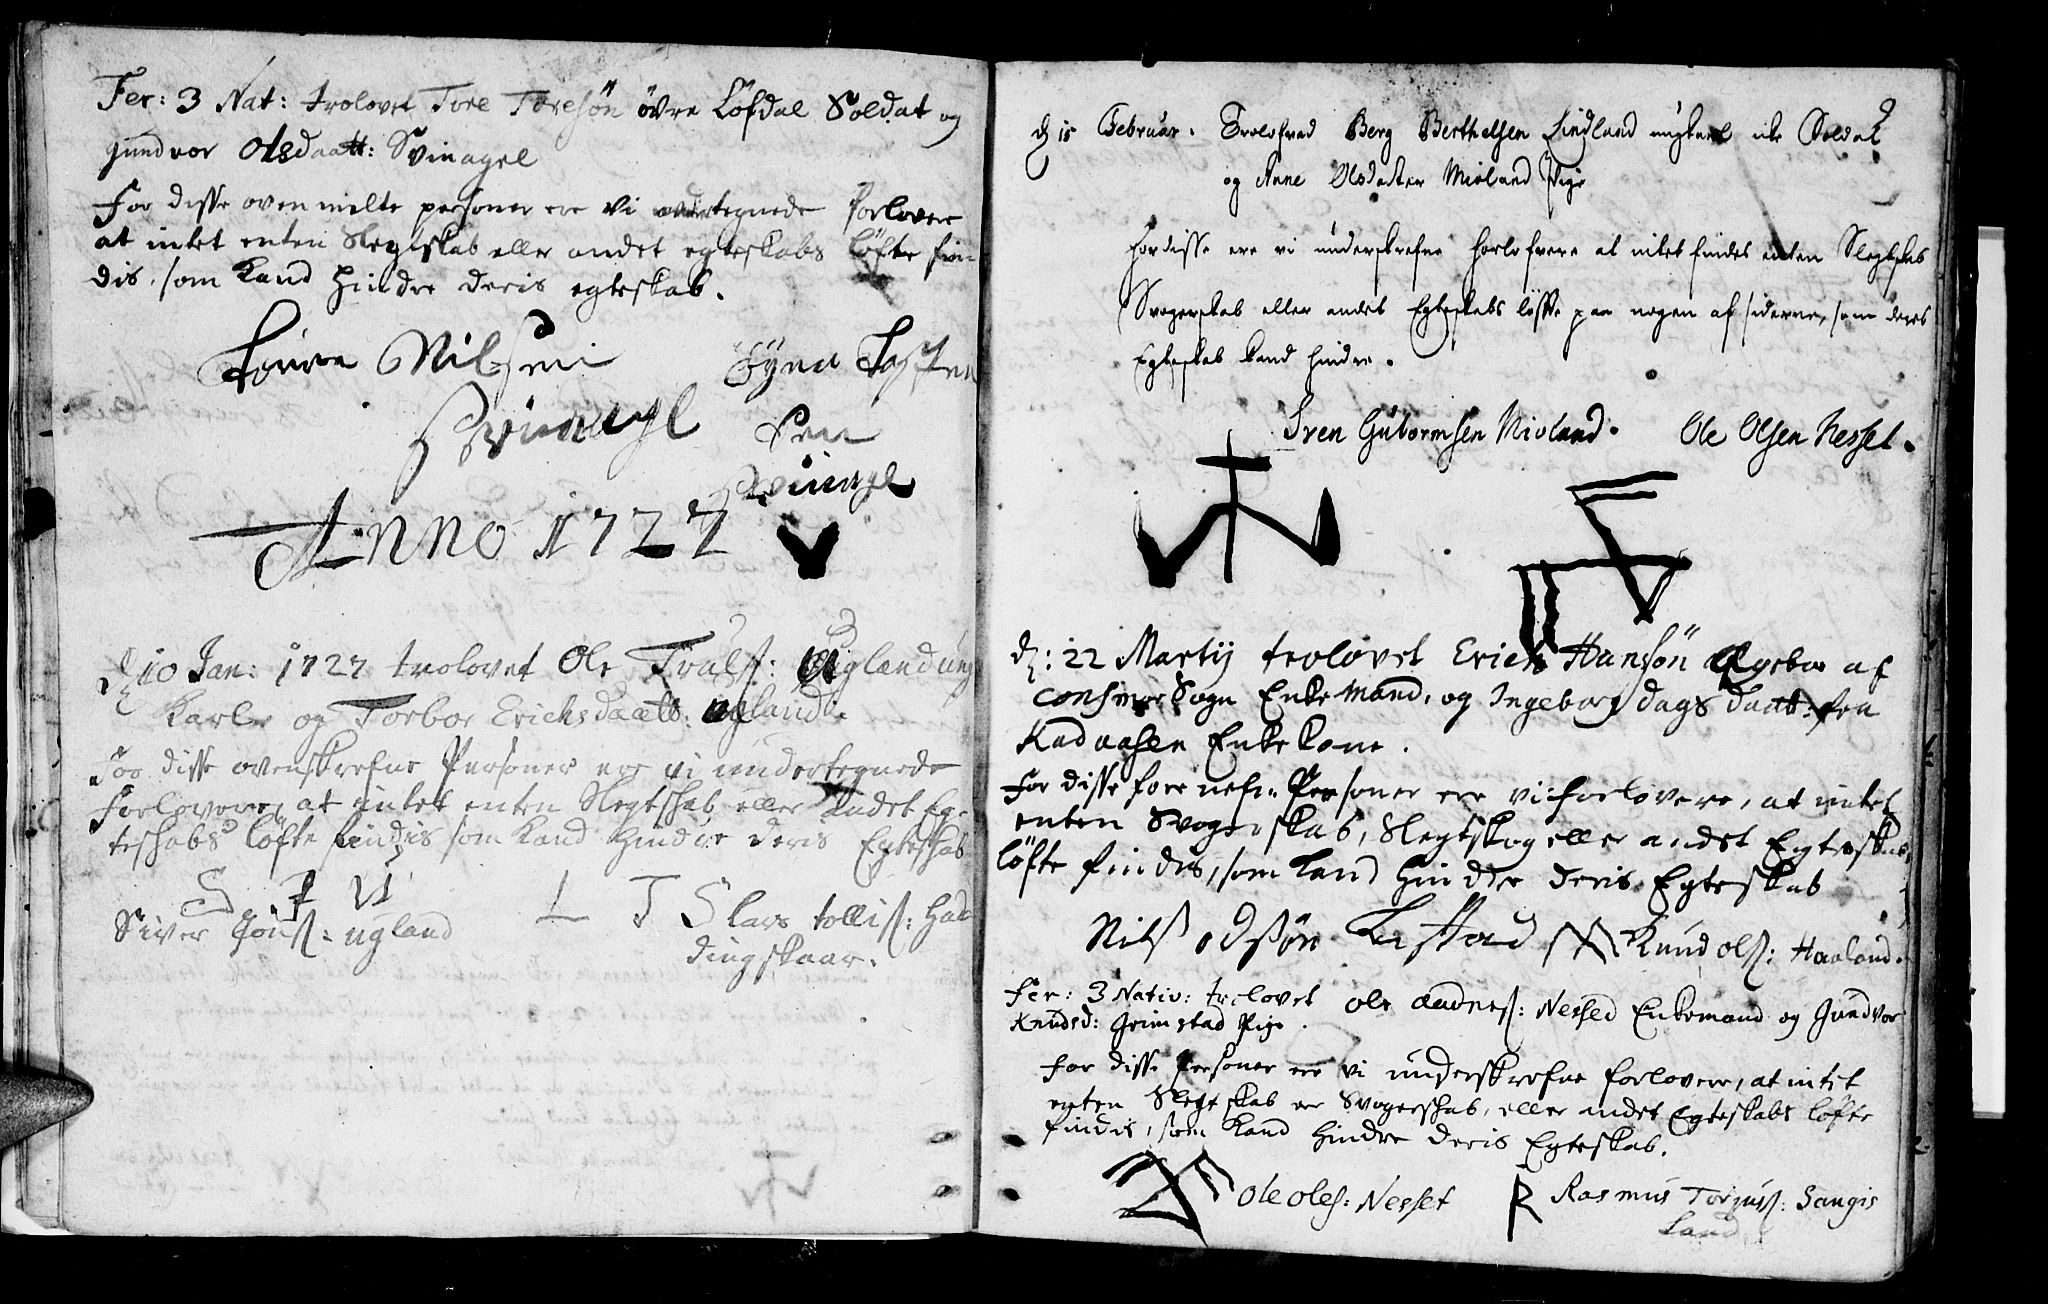 Fer: 3 Nat: trolovet Tore Toresön övre Löfdal Soldat og
gundvor Olsdaatt: Svinagel
For disse ovenmelte personer ere vi undertegnede forlovere
at intet enten Slegtskab eller andet egteskabs löfte fin-
dis, som kand hindre deris egteskab.
Nilsen
Svinagel
Sen
Svinagel
Anno 1727
d 10 Jan: 1727 trolovet Ole ung
karl og Torbor Erichsdaatt: ugland.
For disse ovenskrefne Personer ere vi undertegnede
Forlovere, at intet enten Slegtschab eller andet Eg-
teschabs löfte findis som kand hindre deris Egteschab
S I U
L T S
Siver Jönß: ugland
lavs tolliß: Had
dingskaar.
2
d 15 Februar. Trolofved Berg Berthelsen Lindland ungkarl icke Soldat
og Anne Olsdatter Mioland Pige
For disse ere vi underskrefne Forlofvere at intet findes enten Slegtskab
Svogerskab eller andet Egteskabs löfte paa nogen af siderne, som deres
Egteskab kand hindre.
Sven Gutormsen Mioland. Ole Olsen Nesset.
d: 22 Martij trolovet Erich Hansön af
Sogn Enkemand, og Ingeborg dags daatt: fra
Kadaasen Enkekone.
For disse forenefn: Personer ere vi forlovere, at intet
enten Svogerskab, Slegtskog eller andet Egteskabs
löfte findis, som kand hindre deris Egteskab
Nilß odsön Knud olß: Haaland.
Fer: 3 Nativ: trolovet Ole Aadneß: Nesset Enkemand og Gundvor
Knudsd: Grimstad Pige.
For disse Personer ere vi underskrefne forlovere, at intet
enten Slegtskab er Svogerschab, eller andet Egteskabs löfte
findis, som kand hindre deris Egteskab.
Ole oleß: Nesset R Rasmus Torjusß: Sangis
land